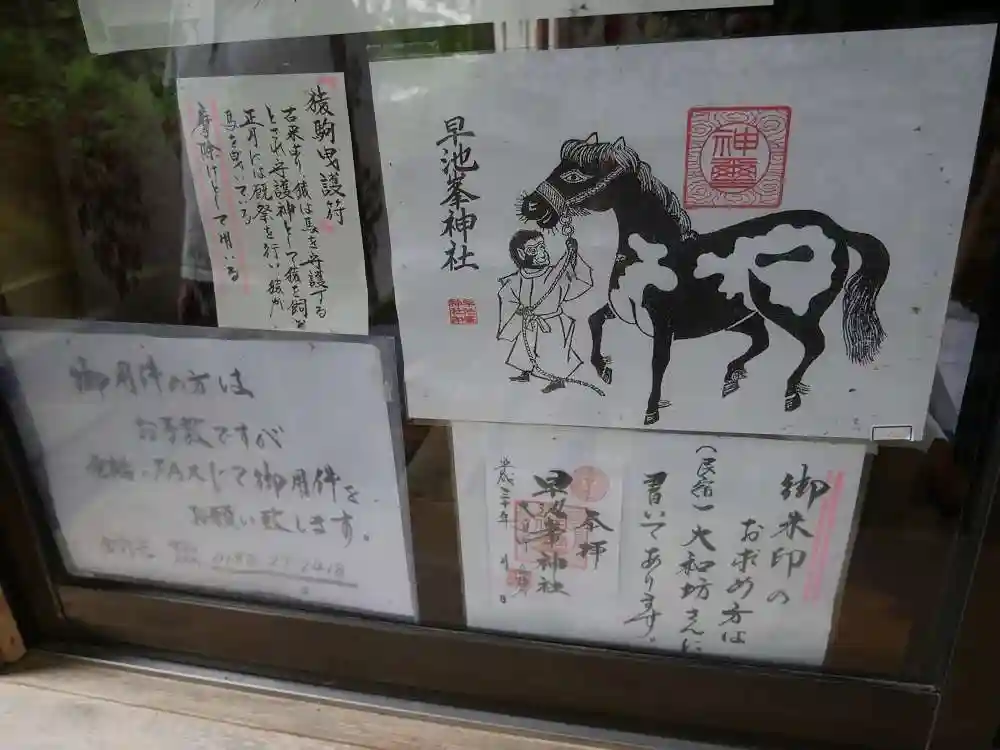 猿駒曳護符
古来より、猿は馬を守護する
とされ守護神として猿を飼い
正月には厩祭を行い猿が
馬を曳いている
魔除けとして用いる
早池峯神社
神璽
御用件の方は
お手数ですが
電話・FAXにて御用件を
お願い致します。
御朱印の
お求め方は
(民宿)大和坊さんに
書いてあります。
奉拝
早池峯神社
平成三十年 月 日